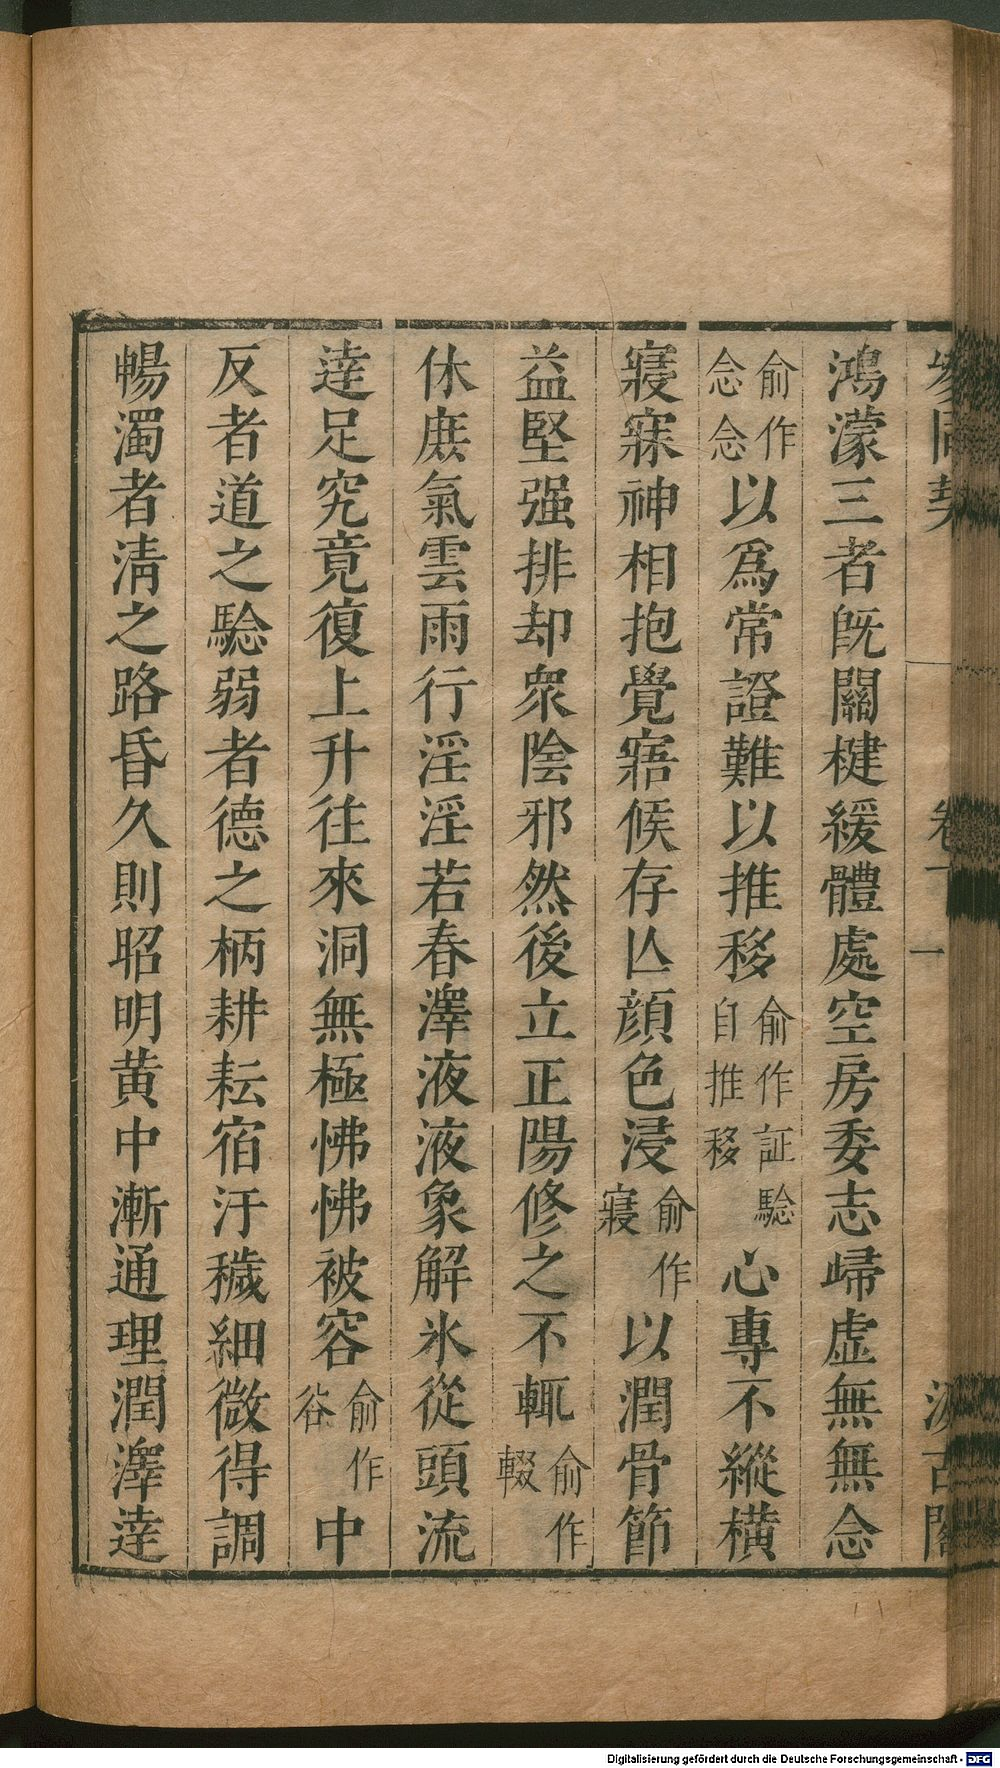 參同契 卷 一 汲古閣
鴻濛三者旣關楗緩體處空房委志歸虛無無念
俞作念念以爲常證難以推移俞作証驗自推移心專不縱橫
寢寐神相抱覺寤候存亾顏色浸俞作寢以潤骨節
益堅强排却衆陰邪然後立正陽修之不輒俞作輟
休庶氣雲雨行淫淫若春澤液液象解氷從頭流
達足究竟復上升往來洞無極怫怫被容俞作谷中
反者道之驗弱者德之柄耕耘宿汙穢細微得調
暢濁者清之路昏久則昭明黃中漸通理潤澤達
Digitalisierung gefördert durch die Deutsche Forschungsgemeinschaft - DFG